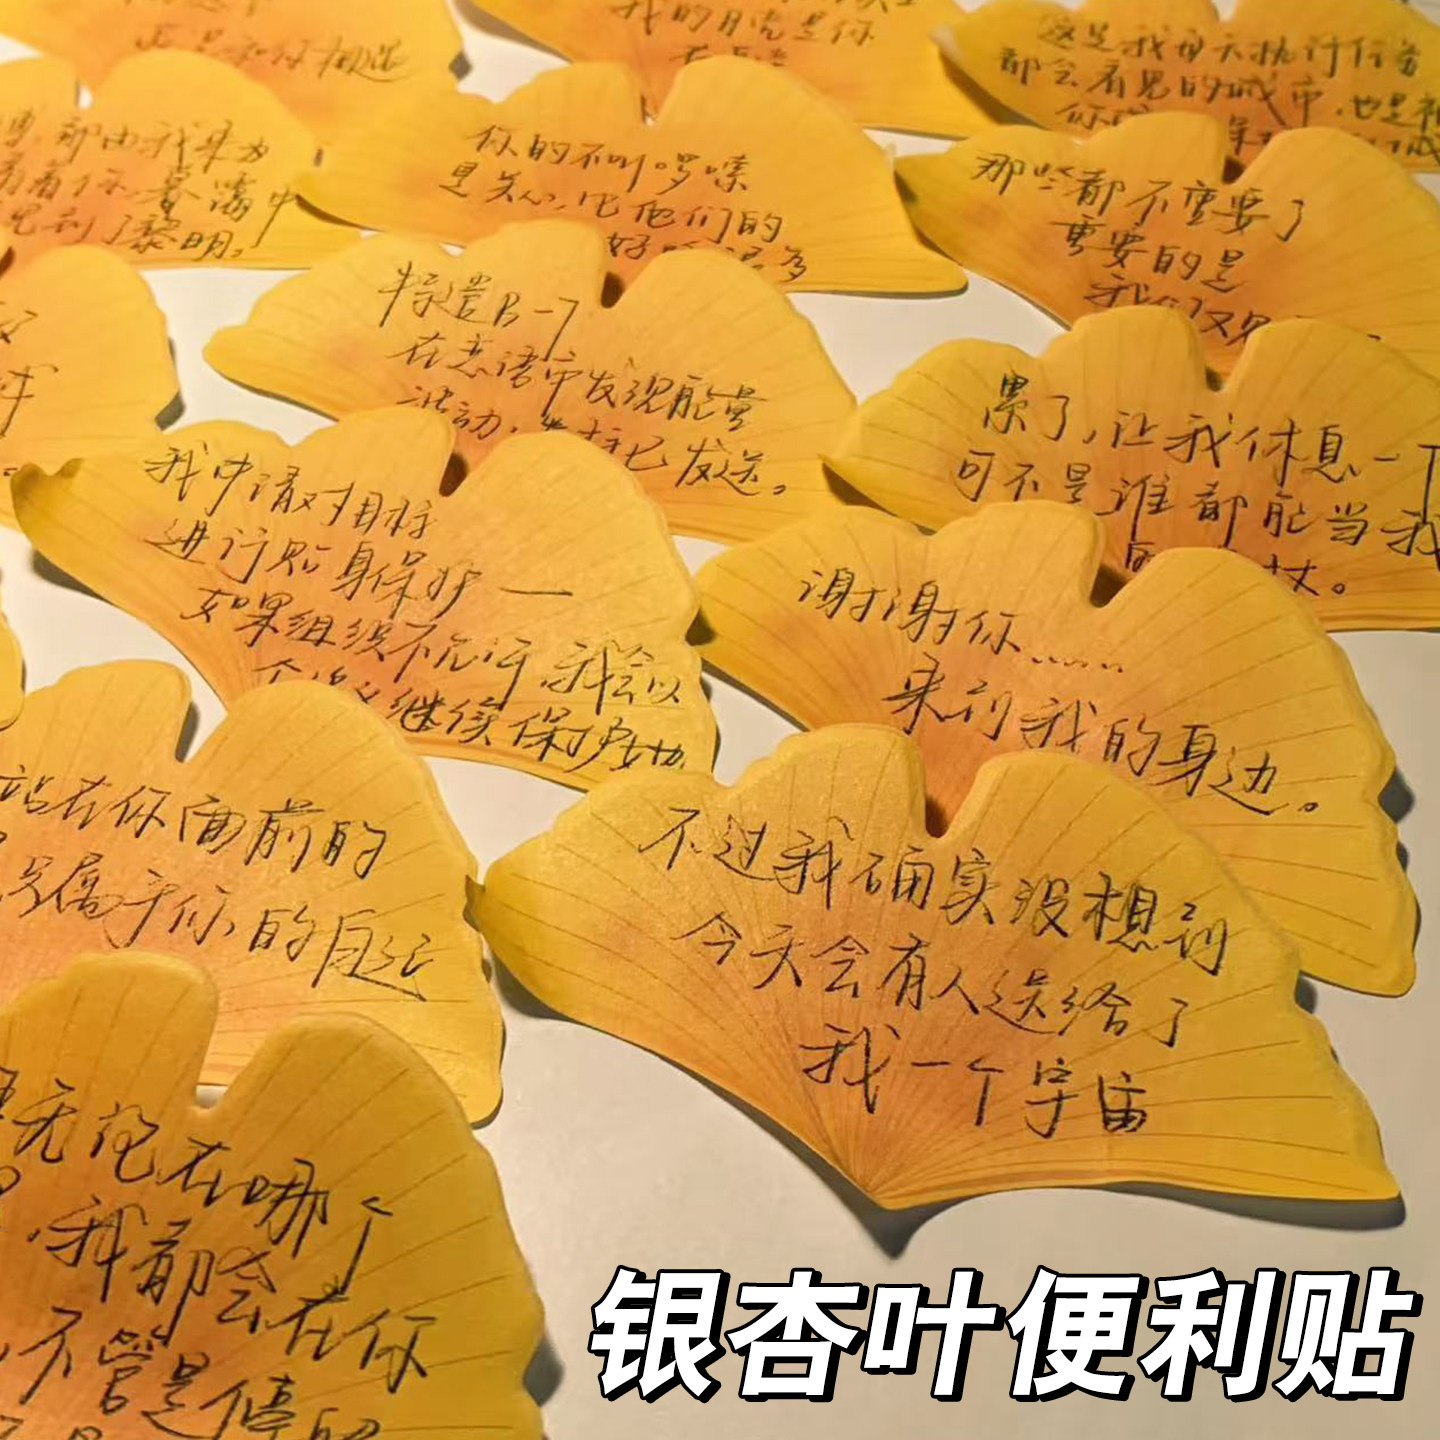 我的月亮是你
这是我每天执行任务
都会看见的城市,也是和
都由我来为
看着你,春潘中
见到了黎明。
你的不叫啰嗦
是关心,比他们的
那些都不重要了
重要的是
我们又见
B-7
在恋语市发现能量
波动,坐标已发送。
累了,让我休息一下
可不是谁都能当我
我申请对目标
进行贴身保护——
如果组织不允许,我会以
继续保护她
谢谢你……
来到我的身边。
站在你面前的
只属于你的
不过我确实没想到
今天会有人送给了
我一个宇宙
无论在哪个
,我都会在你
不管是停
银杏叶便利贴